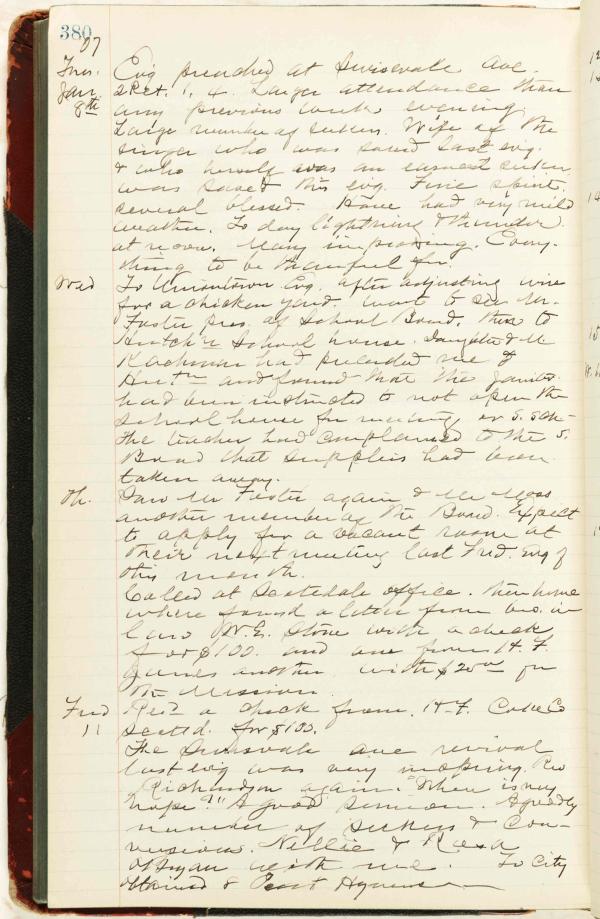 380
07
Tues. Evg preached at Swissvale Ave.
Jan. 2 Pet. 1, 4. Larger attendance than
8th any previous week evening.
Large number of seekers. Wife of the
singer who was saved last evg.
& who herself was an earnest seeker
was saved this evg. Fine spirit.
several blessed. Have had very mild
weather. To day lightning & thunder
at noon. Mary improving. Every-
thing to be thankful for.
Wed To Uniontown Evg. after adjusting wire
for a chicken yard. Went to see Mr.
Foster pres. of School Board, then to
school house. Daughter & Mr
had preceded me to
and found that the janitor
had been instructed to not open the
school house for meeting or S. Sch-
the teacher had complained to the S.
Board that supplies had been
taken away.
Th. Saw Mr Foster again & Mr Moss
another member of the Board. Expect
to apply for a vacant room at
their next meeting last Frid. evg of
this month.
Called at Scottdale office. then home
where found a letter from bro. in
law W. E. Stone with a check
for $100. and one from H. F.
another with $25.00 for
the Mission.
Frid Rec'd a check from H. F. Coke Co
11 Scotd. for $100.
The Swissvale ave revival
last evg was very inspiring. Rev
Richardson again. "Where is my
hope?" A good sermon. A goodly
number of seekers & con-
versions. Nellie & Rosa
with me. To City
obtained &